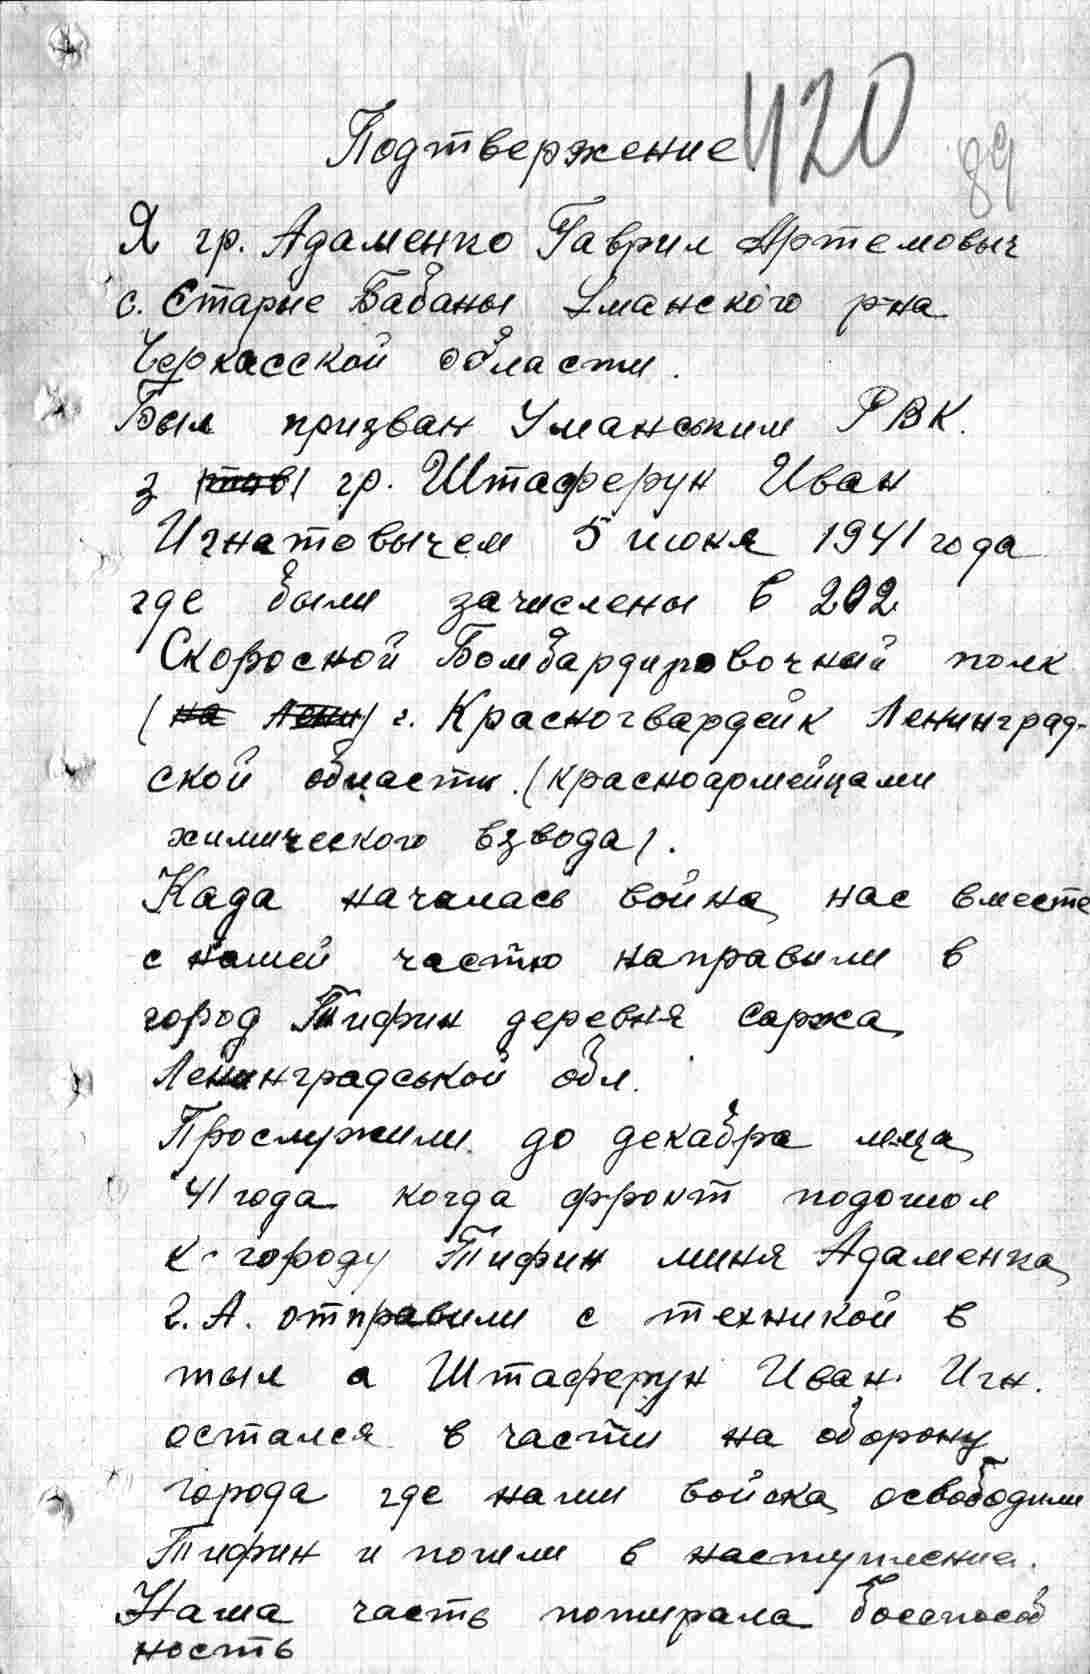 Подтвержение
420
89
Я гр. Адаменко Гаврил Артемовыч
с. Старые Бабаны Уманского р-на
Черкасской области.
Был призван Уманським РВК.
з (тов) гр. Штаферун Иван
Игнатовычем 5 июня 1941 года
где были зачислены в 202
Скоросной Бомбардировочний полк
(на Лени) г. Красногвардейк Ленинград-
ской области. (красноармейцами
химического взвода).
Када началась война, нас вместе
с нашей частю направили в
город Тифин деревня Саржа,
Ленинградськой обл.
Прослужили до декабра м-ца,
41 года когда фронт подошол
к городу Тифин миня Адаменка,
Г. А. отправили с техникой в
тыл а Штаферун Иван Игн.
остался в части на оборону
города где наши войска, освободили
Тифин и пошли в наступление.
Наша часть потирала боеспособ
ность